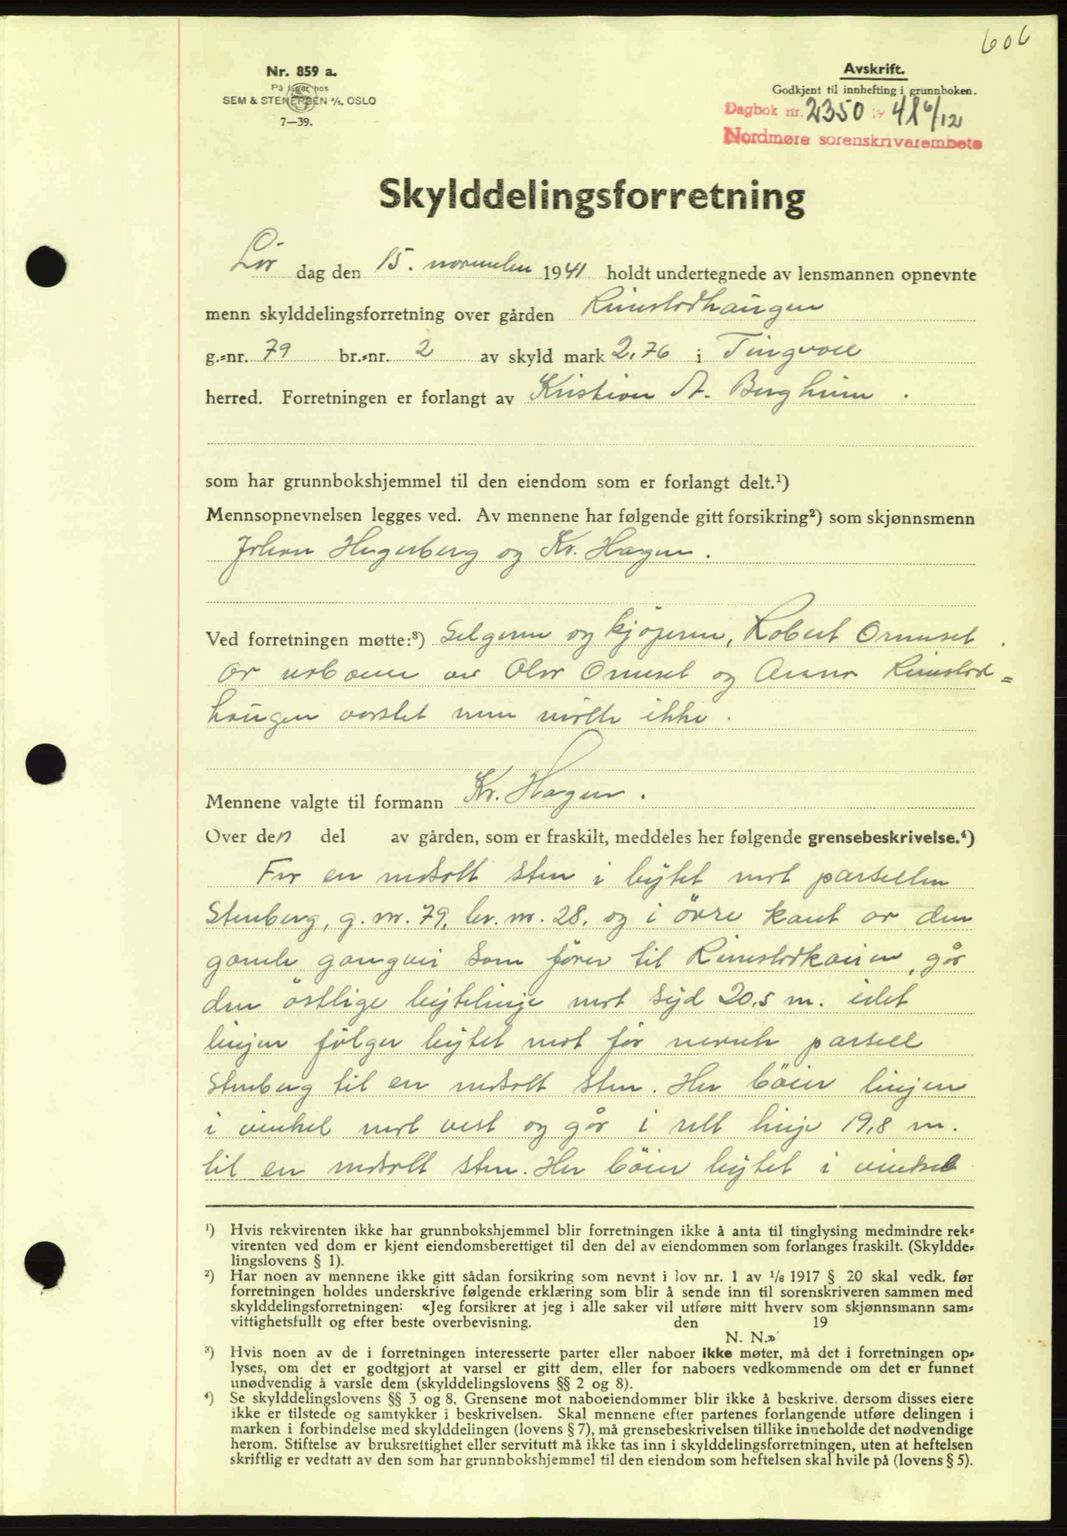 606
Nr. 859 a.
På lager hos
SEM & STENERSEN A/S, OSLO
7—39.
Avskrift.
Godkjent til innhefting i grunnboken.
Dagbok nr. 2350 19 41 6/12
Nordmøre sorenskriverembete
Skylddelingsforretning
Lør dag den 15. november 1941 holdt undertegnede av lensmannen opnevnte
menn skylddelingsforretning over gården Rimstadhaugen
g.=nr. 79 br.=nr. 2 av skyld mark 2,76 i Tingvoll
herred. Forretningen er forlangt av Kristian A. Bergheim .
som har grunnbokshjemmel til den eiendom som er forlangt delt.¹)
Mennsopnevnelsen legges ved. Av mennene har følgende gitt forsikring²) som skjønnsmenn
Johan Hegerberg og Kr. Hagen.
Ved forretningen møtte:³) Selgeren og kjøperen, Robert Ormset.
Av naboene var Olav Ormset og Anna
haugen varslet men møtte ikke.
Mennene valgte til formann Kr. Hagen.
Over den del av gården, som er fraskilt, meddeles her følgende grensebeskrivelse.⁴)
Fra en nedsatt sten i bytet mot parsellen
Stenberg, g. nr. 79, br. nr. 28, og i övre kant av den
gamle gangvei som fører til, går
den östlige bytelinje mot syd 20,5 m. idet
linjen følger bytet mot før nevnte parsell
Stenberg til en nedsatt sten. Her böier linjen
i vinkel mot vest og går i rett linje 19,8 m.
til en nedsatt sten. Her böier bytet i vinkel
¹) Hvis rekvirenten ikke har grunnbokshjemmel blir forretningen ikke å anta til tinglysing medmindre rek=
virenten ved dom er kjent eiendomsberettiget til den del av eiendommen som forlanges fraskilt. (Skyldde=
lingslovens § 1).
²) Har noen av mennene ikke gitt sådan forsikring som nevnt i lov nr. 1 av 1/6 1917 § 20 skal vedk. før
forretningen holdes underskrive følgende erklæring som blir å sende inn til sorenskriveren sammen med
skylddelingsforretningen: «Jeg forsikrer at jeg i alle saker vil utføre mitt hverv som skjønnsmann sam=
vittighetsfullt og efter beste overbevisning. den 19
N. N.»
³) Hvis noen av de i forretningen interesserte parter eller naboer ikke møter, må det i forretningen op=
lyses, om det er godtgjort at varsel er gitt dem, eller for naboers vedkommende om det er funnet
unødvendig å varsle dem (skylddelingslovens §§ 2 og 8).
⁴) Se skylddelingslovens §§ 3 og 8. Grensene mot naboeiendommer blir ikke å beskrive, dersom disses eiere
ikke er tilstede og samtykker i beskrivelsen. Skal mennene efter partenes forlangende utføre delingen i
marken i forbindelse med skylddelingen (lovens § 7), må grensebeskrivelsen tillike inneholde det nødvendige
herom. Stiftelse av bruksrettighet eller servitutt må ikke tas inn i skylddelingsforretningen, uten at heftelsen
skriftlig er vedtatt av den som har grunnbokshjemmel til den eiendom som heftelsen skal hvile på (lovens § 5).